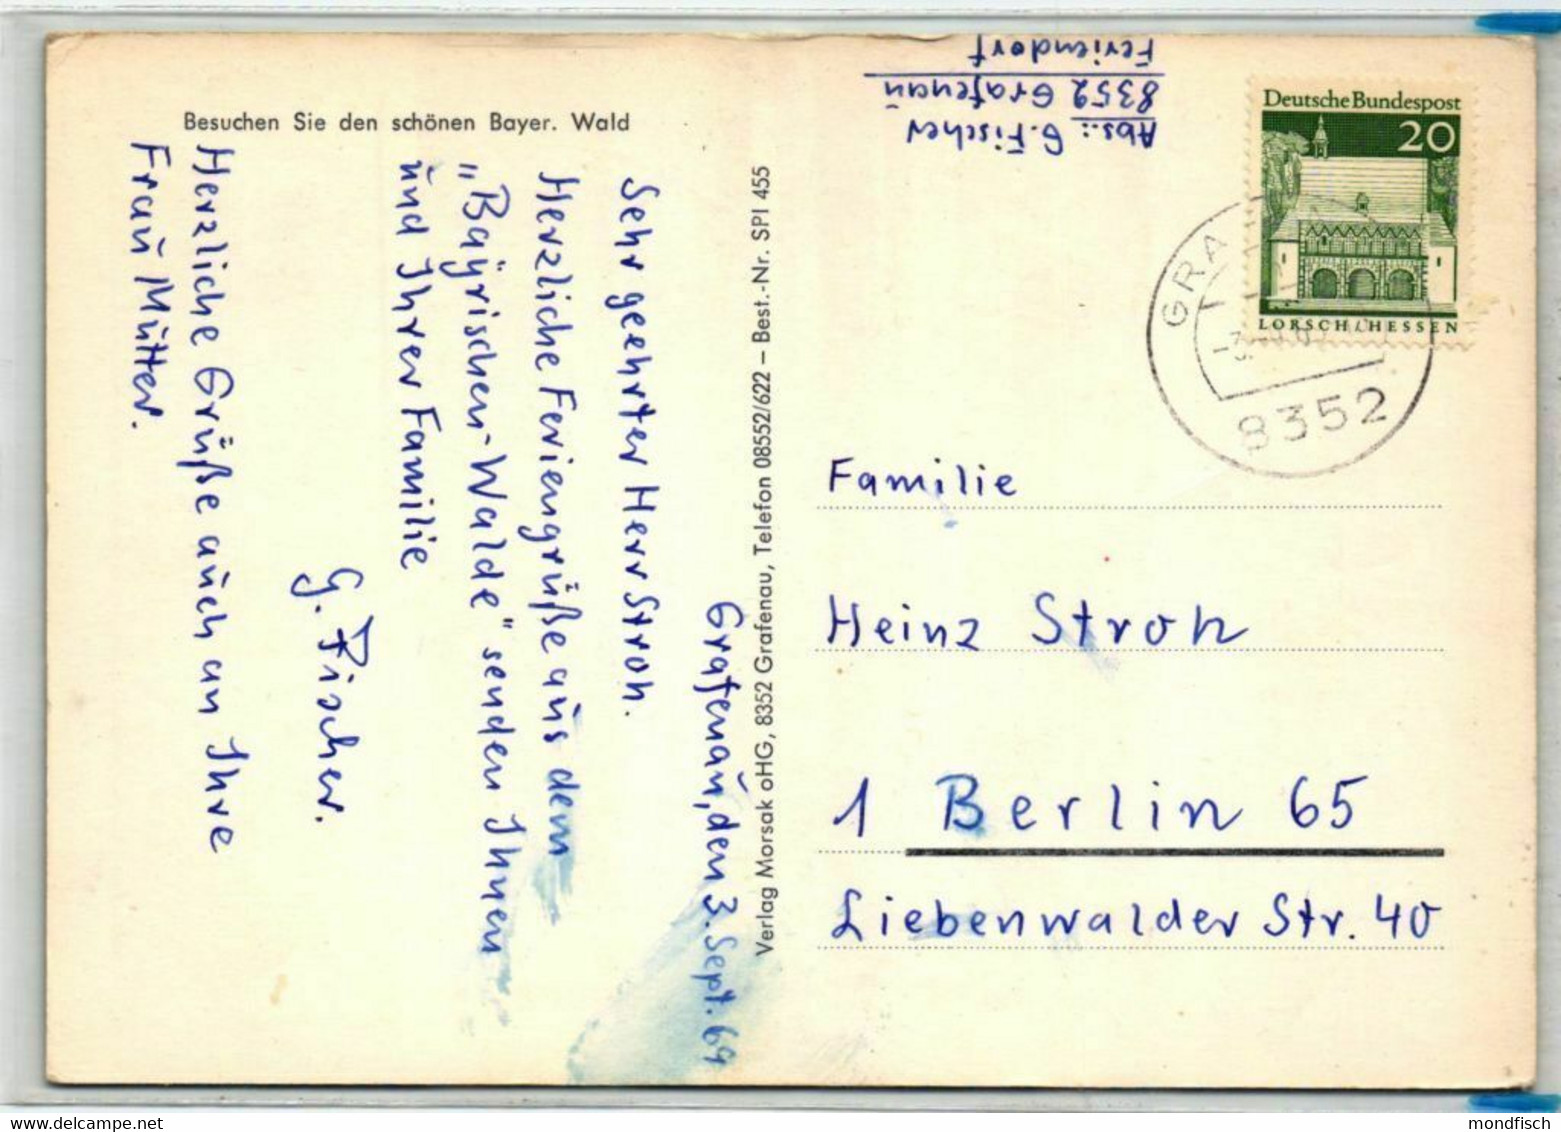 Besuchen Sie den schönen Bayer. Wald
Grafenau, den 3. Sept. 69
Sehr geehrter Herr Stroh.
Herzliche Feriengrüße aus dem
„Bayrischen-Walde" senden Ihnen
und Ihrer Familie
G. Fischer.
Herzliche Grüße auch an Ihre
Frau Mutter.
Verlag Morsak oHG, 8352 Grafenau, Telefon 08552/622 – Best.-Nr. SPI 455
Abs.: G. Fischer
8352 Grafenau
Feriendorf
Deutsche Bundespost
20
LORSCH/HESSEN
8352
Familie
Heinz Stroh
1 Berlin 65
Liebenwalder Str. 40
mondfisch